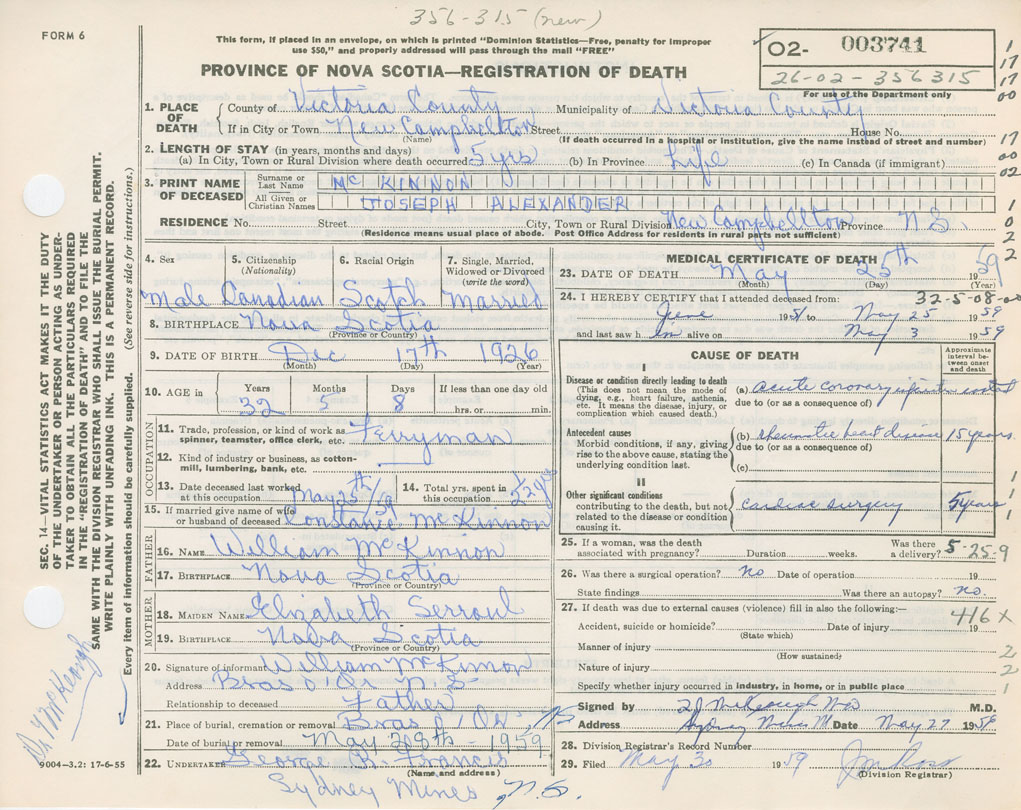 356-315 (new)
FORM 6
This form, if placed in an envelope, on which is printed "Dominion Statistics—Free, penalty for improper
use $50," and properly addressed will pass through the mail "FREE"
O2- 003741
26-02-356315
For use of the Department only
PROVINCE OF NOVA SCOTIA—REGISTRATION OF DEATH
1. PLACE OF DEATH
County of Victoria County Municipality of Victoria County
If in City or Town New Campbellton Street House No.
(Name) (If death occurred in a hospital or institution, give the name instead of street and number)
2. LENGTH OF STAY (in years, months and days)
(a) In City, Town or Rural Division where death occurred 5 yrs (b) In Province Life (c) In Canada (if immigrant)
3. PRINT NAME OF DECEASED
Surname or Last Name McKINNON
All Given or Christian Names JOSEPH ALEXANDER
RESIDENCE No. Street City, Town or Rural Division New Campbellton Province N S
(Residence means usual place of abode. Post Office Address for residents in rural parts not sufficient)
4. Sex 5. Citizenship (Nationality) 6. Racial Origin 7. Single, Married, Widowed or Divorced (write the word)
Male Canadian Scotch Married
8. BIRTHPLACE Nova Scotia
(Province or Country)
9. DATE OF BIRTH Dec 17th 1926
(Month) (Day) (Year)
10. AGE in Years Months Days If less than one day old
32 5 8 hrs. or min.
OCCUPATION
11. Trade, profession, or kind of work as spinner, teamster, office clerk, etc. Ferryman
12. Kind of industry or business, as cotton-mill, lumbering, bank, etc.
13. Date deceased last worked at this occupation May 25th/59
14. Total yrs. spent in this occupation
15. If married give name of wife or husband of deceased Constance McKinnon
FATHER
16. NAME William McKinnon
17. BIRTHPLACE Nova Scotia
(Province or Country)
MOTHER
18. MAIDEN NAME Elizabeth
19. BIRTHPLACE Nova Scotia
(Province or Country)
20. Signature of informant William McKinnon
Address Bras d'Or N S
Relationship to deceased Father
21. Place of burial, cremation or removal Bras d'Or, NS
Date of burial or removal May 28th - 1959
22. UNDERTAKER George R. Francis
(Name and address)
Sydney Mines N.S.
MEDICAL CERTIFICATE OF DEATH
23. DATE OF DEATH May 25th 1959
(Month) (Day) (Year)
24. I HEREBY CERTIFY that I attended deceased from: 32-5-08-00
June to May 25 1959
and last saw h im alive on May 3 1959
CAUSE OF DEATH
Approximate interval between onset and death
I
Disease or condition directly leading to death
(This does not mean the mode of dying, e.g., heart failure, asthenia, etc. It means the disease, injury, or complication which caused death.)
(a) Acute coronary
due to (or as a consequence of)
Antecedent causes
Morbid conditions, if any, giving rise to the above cause, stating the underlying condition last.
(b) rheumatic heart disease 15 years
due to (or as a consequence of)
(c)
II
Other significant conditions
contributing to the death, but not related to the disease or condition causing it.
cardiac surgery 5 years
25. If a woman, was the death associated with pregnancy? Duration weeks. Was there a delivery? 5-25-9
26. Was there a surgical operation? No Date of operation 19
State findings Was there an autopsy? No.
27. If death was due to external causes (violence) fill in also the following:—
416 X
Accident, suicide or homicide? Date of injury 19
(State which)
Manner of injury
(How sustained)
Nature of injury
Specify whether injury occurred in industry, in home, or in public place
Signed by McKeough M.D.
Address Sydney Mines Date May 27 195
28. Division Registrar's Record Number
29. Filed May 30 1959 Ross
(Division Registrar)
SEC. 14—VITAL STATISTICS ACT MAKES IT THE DUTY
OF THE UNDERTAKER OR PERSON ACTING AS UNDER-
TAKER TO OBTAIN ALL THE PARTICULARS REQUIRED
IN THE "REGISTRATION OF DEATH" AND TO FILE THE
SAME WITH THE DIVISION REGISTRAR WHO SHALL ISSUE THE BURIAL PERMIT.
WRITE PLAINLY WITH UNFADING INK. THIS IS A PERMANENT RECORD.
Every item of information should be carefully supplied. (See reverse side for instructions.)
Dr McKeough
9004—3.2: 17-6-55